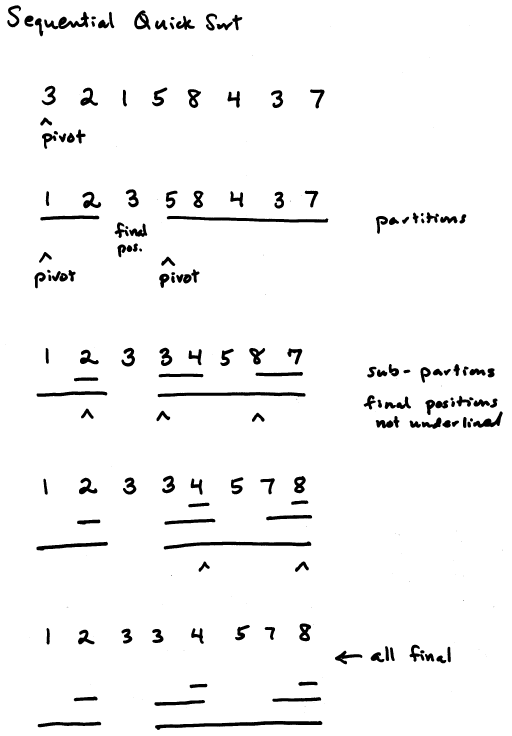 Sequential Quick Sort
3 2 1 5 8 4 3 7
^
pivot
1 2 3 5 8 4 3 7
partitions
final
pos.
^ ^
pivot pivot
1 2 3 3 4 5 8 7
sub-partions
final positions
not underlined
^ ^ ^
1 2 3 3 4 5 7 8
^ ^
1 2 3 3 4 5 7 8
← all final